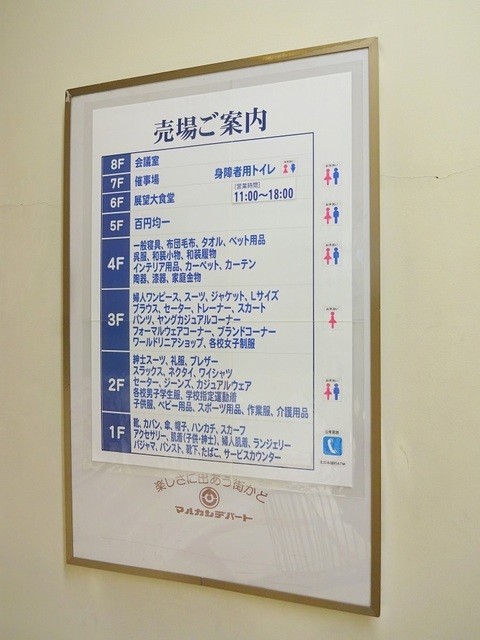 売場ご案内
8F 会議室
7F 催事場 身障者用トイレ
6F 展望大食堂 [営業時間] 11:00〜18:00
5F 百円均一
4F 一般寝具、布団毛布、タオル、ペット用品
呉服、和装小物、和装履物
インテリア用品、カーペット、カーテン
陶器、漆器、家庭金物
3F 婦人ワンピース、スーツ、ジャケット、Lサイズ
ブラウス、セーター、トレーナー、スカート
パンツ、ヤングカジュアルコーナー
フォーマルウェアコーナー、ブランドコーナー
ワールドリニアショップ、各校女子制服
2F 紳士スーツ、礼服、ブレザー
スラックス、ネクタイ、ワイシャツ
セーター、ジーンズ、カジュアルウェア
各校男子学生服、学校指定運動衣
子供服、ベビー用品、スポーツ用品、作業服、介護用品
1F 靴、カバン、傘、帽子、ハンカチ、スカーフ
アクセサリー、肌着(子供・紳士)、婦人肌着、ランジェリー
パジャマ、パンスト、靴下、たばこ、サービスカウンター
楽しさに出あう街かど
マルカンデパート